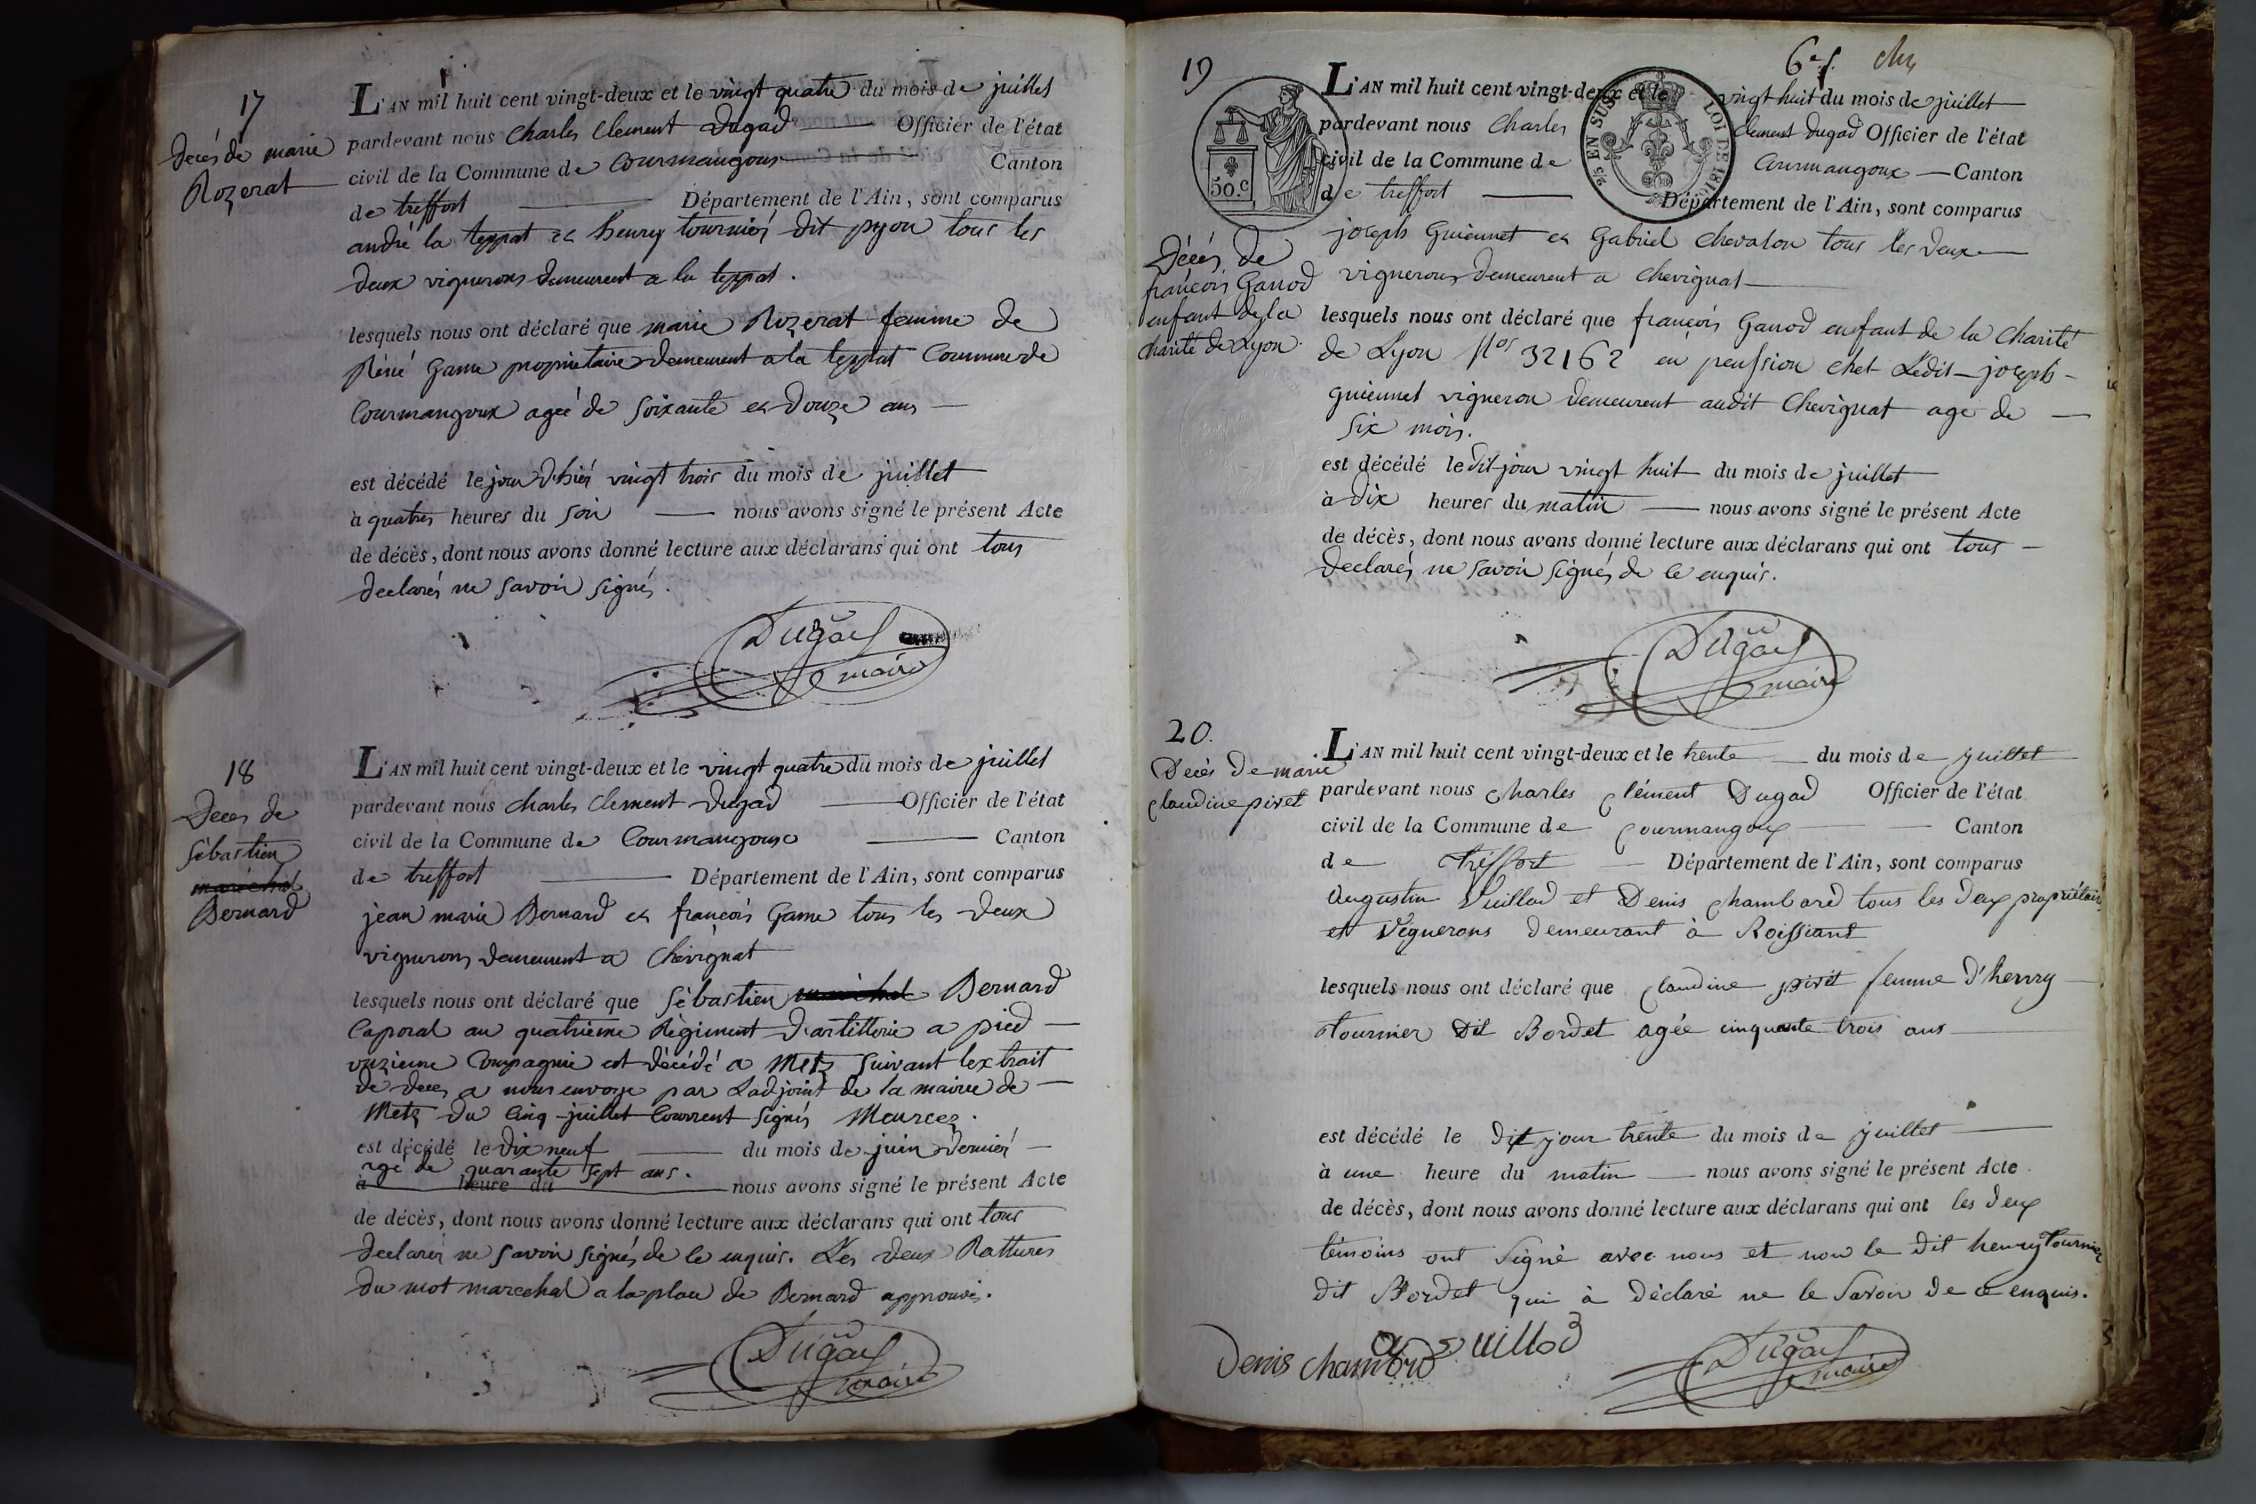 17
Decès de marie
Rozerat
L'AN mil huit cent vingt-deux et le vingt quatre du mois de juillet
pardevant nous Charles Clement Dugad Officier de l'état
civil de la Commune de Courmangoux Canton
de treffort Département de l'Ain, sont comparus
andré la teppat et henry tournier dit pyon tous les
deux vignerons demeurent a la teppat.
lesquels nous ont déclaré que marie Rozerat femme de
Réné Game proprietaire demeurent a la teppat Commune de
Courmangoux ageé de soixante et douze ans
est décédé le jour d'hier vingt trois du mois de juillet
à quatres heures du soir nous avons signé le présent Acte
de décès, dont nous avons donné lecture aux déclarans qui ont tous
declarés ne savoir signés.
Dugad
maire
18
Deces de
Sébastien
marechal
Bernard
L'AN mil huit cent vingt-deux et le vingt quatre du mois de juillet
pardevant nous Charles Clement Dugad Officier de l'état
civil de la Commune de Courmangoux Canton
de treffort Département de l'Ain, sont comparus
jean marie Bernard et françois Game tous les deux
vignerons demeurent a Chevignat
lesquels nous ont déclaré que Sébastien marechal Bernard
Caporal au quatrieme Régiment d'artillerie a pied
onzieme Compagnie est décédé a Metz suivant lextrait
de deces a nous envoye par Ladjoint de la mairie de
Metz du Cinq juillet Courrent signés
est décédé le dix neuf du mois de juin dernier
age de quarante sept ans.
à heure du nous avons signé le présent Acte
de décès, dont nous avons donné lecture aux déclarans qui ont tous
declarés ne savoir signés de ce enquis. Les deux Rattures
du mot marechal a la place de Bernard approuvés.
Dugad
maire
19
L'AN mil huit cent vingt-deux et le vingt huit du mois de juillet
pardevant nous Charles Clement Dugad Officier de l'état
civil de la Commune de Courmangoux Canton
de treffort Département de l'Ain, sont comparus
25 EN SUS LOI DE 1816
50.c
joseph Guiennet et Gabriel Chevalon tous les deux
vignerons demeurent a Chevignat
Décès de
françois Garrod
enfant de la
charité de Lyon.
lesquels nous ont déclaré que françois Garrod enfant de la Charité
de Lyon Nos 32162 en penssion chet Ledit joseph
guiennet vigneron demeurent audit Chevignat age de
six mois.
est décédé le dit jour vingt huit du mois de juillet
à dix heures du matin nous avons signé le présent Acte
de décès, dont nous avons donné lecture aux déclarans qui ont tous
declarés ne savoir signés de ce enquis.
Dugad
maire
20.
Décès de marie
Claudine pivet
L'AN mil huit cent vingt-deux et le trente du mois de juillet
pardevant nous Charles Clément Dugad Officier de l'état
civil de la Commune de Courmangoux Canton
de Treffort Département de l'Ain, sont comparus
Augustin Vuillod et Denis Chambard tous les deux propriétaires
et Vignerons demeurant à Roissiant
lesquels nous ont déclaré que Claudine pivet femme d'henry
Tournier dit Bordet agée cinquante trois ans
est décédé le dit jour trente du mois de juillet
à une heure du matin nous avons signé le présent Acte
de décès, dont nous avons donné lecture aux déclarans qui ont les deux
témoins ont signé avec nous et non le dit henry Tournier
dit Bordet qui à déclaré ne le savoir de ce enquis.
Denis chambard a vuillod
Dugad
maire